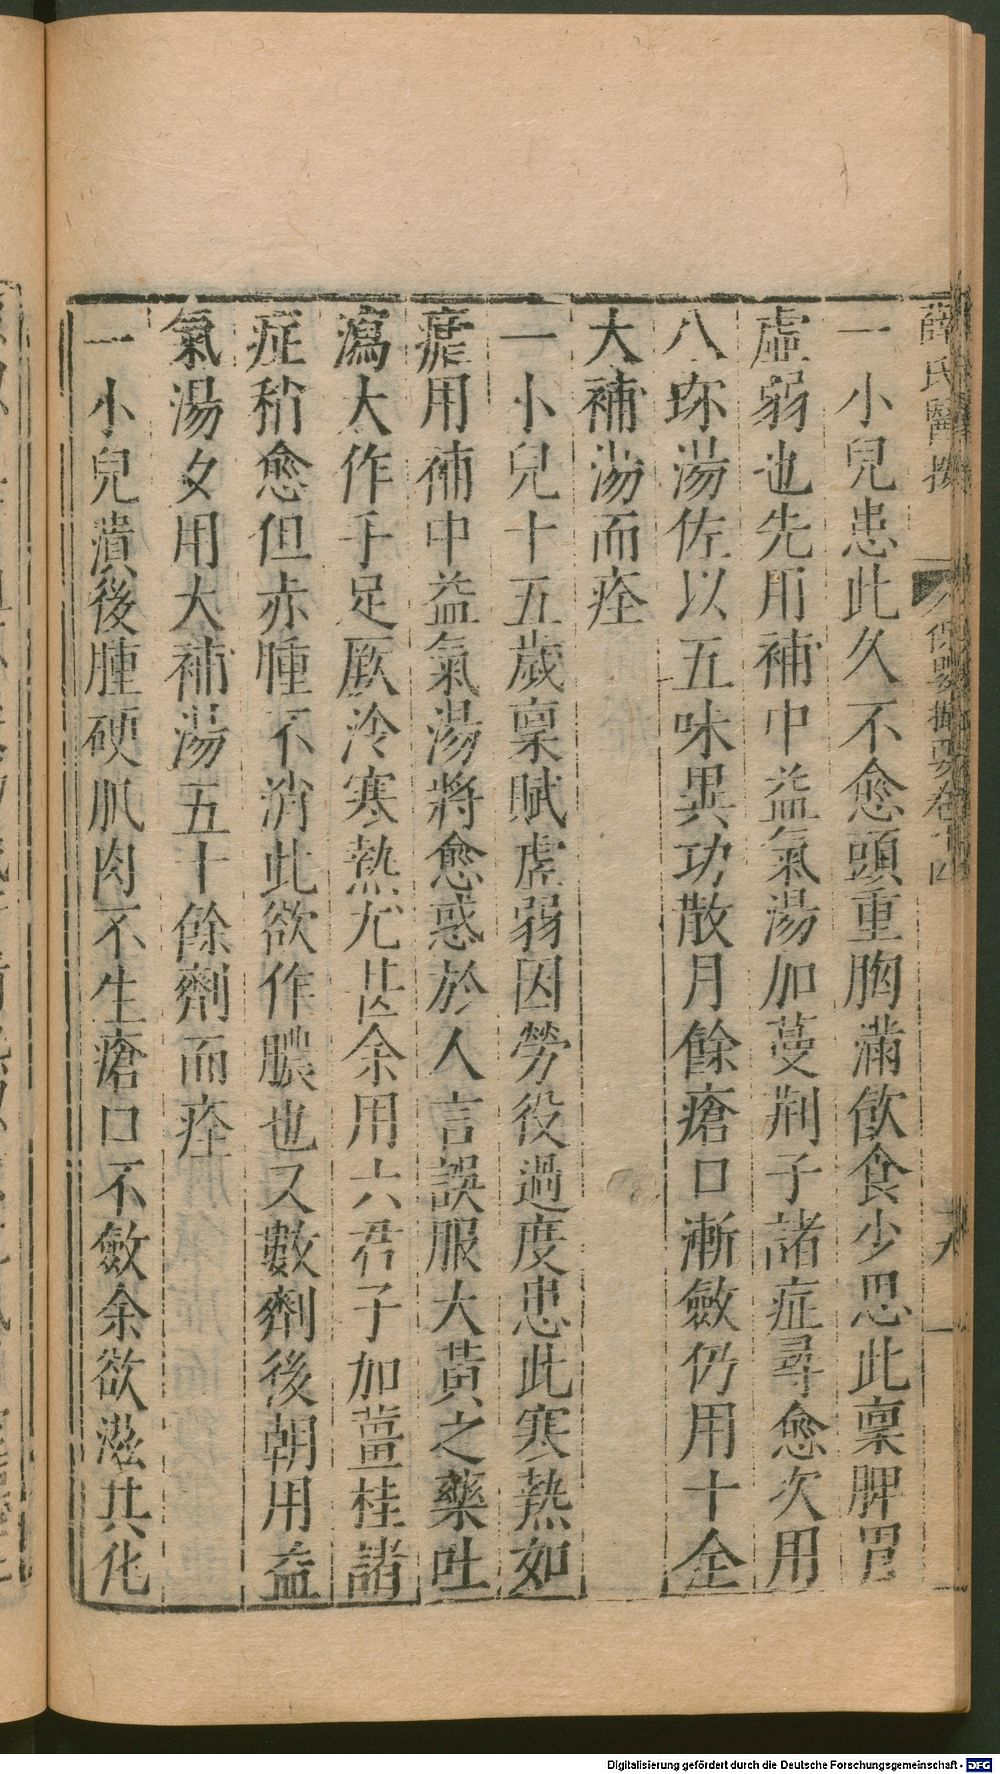 薛氏醫按 保嬰撮要卷十四
一小兒患此久不愈頭重胸滿飲食少思此稟脾胃
虛弱也先用補中益氣湯加蔓荊子諸症尋愈次用
八珎湯佐以五味異功散月餘瘡口漸斂仍用十全
大補湯而痊
一小兒十五歲稟賦虛弱因勞役過度患此寒熱如
瘧用補中益氣湯將愈惑於人言誤服大黃之藥吐
瀉大作手足厥冷寒熱尤甚余用六君子加薑桂諸
症稍愈但赤腫不消此欲作膿也又數劑後朝用益
氣湯夕用大補湯五十餘劑而痊
一小兒潰後腫硬肌肉不生瘡口不斂余欲滋其化
Digitalisierung gefördert durch die Deutsche Forschungsgemeinschaft - DFG